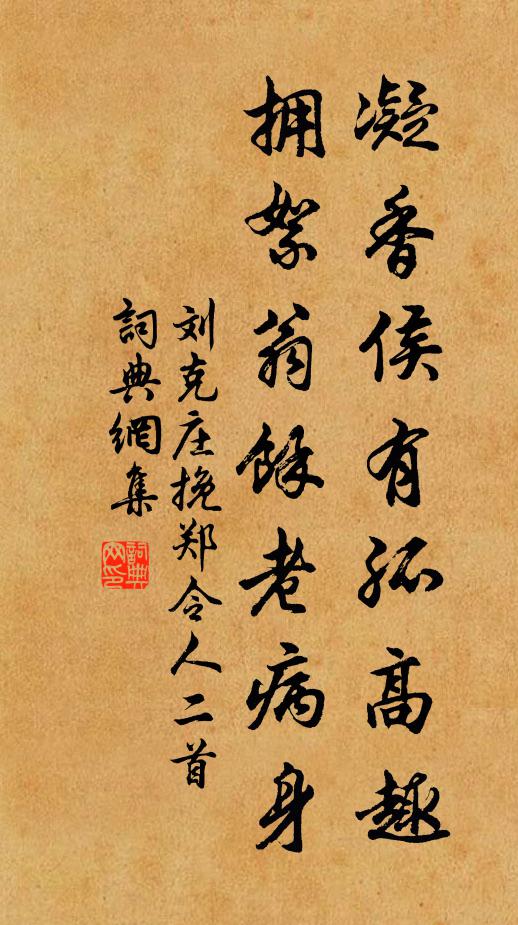 凝香侯有孤高趣
拥絮翁餘老病身
刘克庄挽郑令人二首
詞典網集
詞典网印